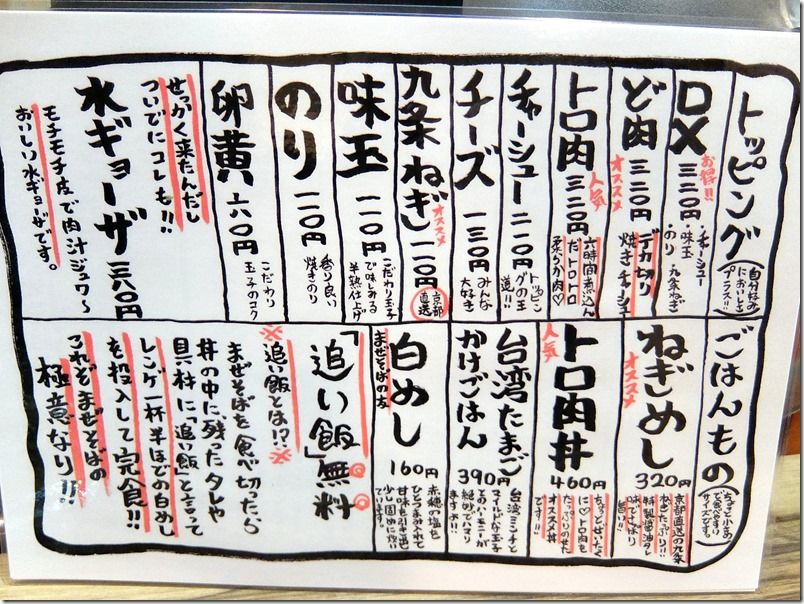 トッピング
(自分好み
においしさ
プラス!!)
DX
三二〇円
お得!!
・チャーシュー
・味玉
・のり・九条ねぎ
ど肉
三二〇円
オススメ
デカ切り
焼きチャーシュー
トロ肉
三二〇円
人気
六時間煮込ん
だトロトロ
柔らか肉♡
チャーシュー
二一〇円
トッピン
グの王
道!!
チーズ
一三〇円
みんな
大好き
九条ねぎ
オススメ
一一〇円
京都
直送
味玉
一一〇円
こだわり玉子
で味しみる
半熟仕上げ
のり
一一〇円
香り良い
焼きのり
卵黄
六〇円
こだわり
玉子のコク
水ギョーザ
三八〇円
せっかく来たんだし
ついでにコレも!!
モチモチ皮で肉汁ジュワ〜
おいしい水ギョーザです。
ごはんもの
(ちょっと小さめ
で食べやすい
サイズです。)
ねぎめし
オススメ
320円
京都直送の九条
ねぎたっぷり!!
特製醤油タレ
味でさっぱり
旨い!!
トロ肉丼
人気
460円
ちょっとぜいたく
に♡トロ肉を
たっぷりのせた
オススメ丼
です!!
台湾たまご
かけごはん
390円
台湾ミンチと
マイルドな玉子
とのハーモニーが
絶妙でハマり
ますよ!!
白めし
まぜそばの友
160円
赤穂の塩を
ひとつまみ入れて
甘味を引き出し
少し固めに炊い
ています。
「追い飯」無料
※追い飯とは!?※
まぜそばを食べ切ったら
丼の中に残ったタレや
具材に「追い飯」と言って
レンゲ一杯半ほどの白めし
を投入して完食!!
これぞまぜそばの
極意なり!!